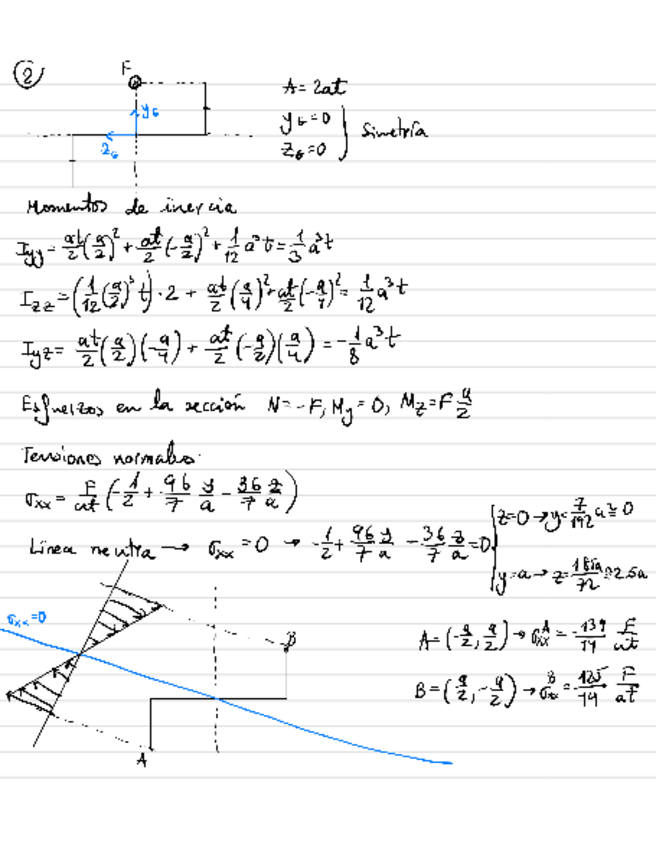 ②
F
A = 2at
y_G
y_G = 0
z_G
z_G = 0
Simetría
Momentos de inercia
I_yy = at/2 (a/2)² + at/2 (-a/2)² + 1/12 a³t = 1/3 a³t
I_zz = (1/12 (a/2)³ t) · 2 + at/2 (a/4)² + at/2 (-a/4)² = 1/12 a³t
I_yz = at/2 (a/2)(-a/4) + at/2 (-a/2)(a/4) = -1/8 a³t
Esfuerzos en la sección N = -F, M_y = 0, M_z = F a/2
Tensiones normales.
σ_xx = F/at (-1/2 + 96/7 y/a - 36/7 z/a)
Línea neutra → σ_xx = 0 → -1/2 + 96/7 y/a - 36/7 z/a = 0
z=0 → y = 7/192 a ≅ 0
y=a → z = 185a/72 ≅ 2.5a
σ_xx = 0
B
A
A = (-a/2, a/2) → σ_xx^A = -139/14 F/at
B = (a/2, -a/2) → σ_xx^B = 125/14 F/at